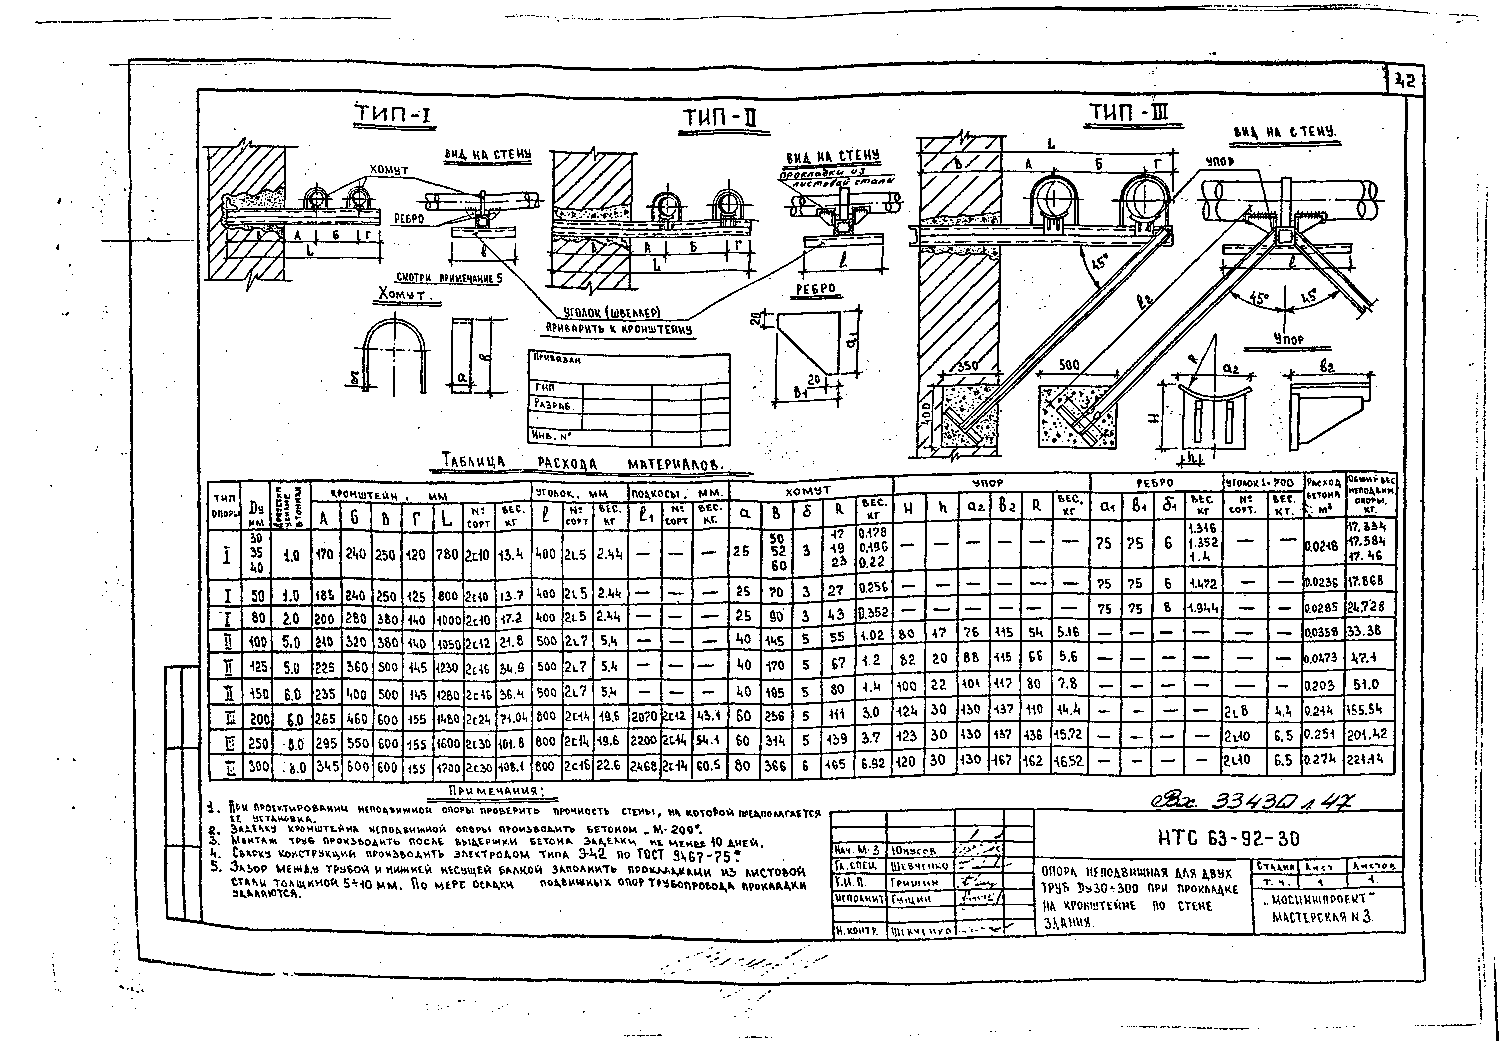 42
ТИП-I
ТИП-II
ТИП-III
ВИД НА СТЕНУ
ХОМУТ
РЕБРО
А Б Г
L
ℓ
СМОТРИ ПРИМЕЧАНИЕ 5
ВИД НА СТЕНУ
ПРОКЛАДКИ ИЗ
ЛИСТОВОЙ СТАЛИ
А Б Г
L
ℓ
УГОЛОК (ШВЕЛЛЕР)
ПРИВАРИТЬ К КРОНШТЕЙНУ
ВИД НА СТЕНУ.
УПОР
L
В А Б Г
45°
ℓ2
ℓ
45° 45°
350
500
400
ХОМУТ.
В
а
РЕБРО
20
а1
20
В1
УПОР
R
а2
В2
Н
h
ПРИВЯЗАН
ГИП
РАЗРАБ.
ИНВ. N°
ТАБЛИЦА РАСХОДА МАТЕРИАЛОВ.
ТИП ОПОРЫ Dу ММ КРОНШТЕЙН, ММ УГОЛОК, ММ ПОДКОСЫ, ММ. ХОМУТ УПОР РЕБРО УГОЛОК L=700 РАСХОД БЕТОНА М³ ОБЩИЙ ВЕС НЕПОДВИЖ. ОПОРЫ. КГ.
А Б В Г L N° СОРТ ВЕС. КГ ℓ N° СОРТ ВЕС. КГ. ℓ1 N° СОРТ ВЕС. КГ. а В δ R ВЕС. КГ Н h а2 В2 R ВЕС. КГ а1 В1 δ1 ВЕС КГ N° СОРТ. ВЕС. КГ.
I 30 35 40 1.0 170 240 250 120 780 2с10 13.4 400 2L5 2.44 — — — 25 50 52 60 3 17 19 23 0.178 0.196 0.22 — — — — — — 75 75 6 1.316 1.352 1.4 — — 0.0218 17.334 17.584 17.46
I 50 1.0 185 240 250 125 800 2с10 13.7 400 2L5 2.44 — — — 25 70 3 27 0.256 — — — — — — 75 75 6 1.472 — — 0.0236 17.868
I 80 2.0 200 280 380 140 1000 2с10 17.2 400 2L5 2.44 — — — 25 90 3 43 0.352 — — — — — — 75 75 8 1.944 — — 0.0285 24.728
II 100 5.0 210 320 380 140 1050 2с12 21.8 500 2L7 5.4 — — — 40 145 5 55 1.02 80 17 76 115 54 5.16 — — — — — — 0.0358 33.38
II 125 5.0 225 360 500 145 1230 2с16 34.9 500 2L7 5.4 — — — 40 170 5 67 1.2 82 20 88 115 66 5.6 — — — — — — 0.0473 47.1
II 150 6.0 235 400 500 145 1280 2с16 36.4 500 2L7 5.4 — — — 40 195 5 80 1.4 100 22 101 117 80 7.8 — — — — — — 0.203 51.0
III 200 6.0 265 460 600 155 1480 2с24 71.04 800 2с14 19.6 2070 2с12 43.1 60 256 5 111 3.0 124 30 130 137 110 14.4 — — — — 2L8 4.4 0.214 155.54
III 250 8.0 295 550 600 155 1600 2с30 101.8 800 2с14 19.6 2200 2с14 54.1 60 314 5 139 3.7 123 30 130 137 136 15.72 — — — — 2L10 6.5 0.251 201.42
III 300 8.0 345 600 600 155 1700 2с30 108.1 800 2с16 22.6 2468 2с14 60.5 80 366 6 165 6.92 120 30 130 167 162 16.52 — — — — 2L10 6.5 0.274 221.14
ПРИМЕЧАНИЯ:
1. ПРИ ПРОЕКТИРОВАНИИ НЕПОДВИЖНОЙ ОПОРЫ ПРОВЕРИТЬ ПРОЧНОСТЬ СТЕНЫ, НА КОТОРОЙ ПРЕДПОЛАГАЕТСЯ
ЕЕ УСТАНОВКА.
2. ЗАДЕЛКУ КРОНШТЕЙНА НЕПОДВИЖНОЙ ОПОРЫ ПРОИЗВОДИТЬ БЕТОНОМ „М-200".
3. МОНТАЖ ТРУБ ПРОИЗВОДИТЬ ПОСЛЕ ВЫДЕРЖКИ БЕТОНА ЗАДЕЛКИ НЕ МЕНЕЕ 10 ДНЕЙ.
4. СВАРКУ КОНСТРУКЦИЙ ПРОИЗВОДИТЬ ЭЛЕКТРОДОМ ТИПА Э-42 ПО ГОСТ 9467-75.
5. ЗАЗОР МЕЖДУ ТРУБОЙ И НИЖНЕЙ НЕСУЩЕЙ БАЛКОЙ ЗАПОЛНИТЬ ПРОКЛАДКАМИ ИЗ ЛИСТОВОЙ
СТАЛИ ТОЛЩИНОЙ 5÷10 ММ. ПО МЕРЕ ОСАДКИ ПОДВИЖНЫХ ОПОР ТРУБОПРОВОДА ПРОКЛАДКИ
УДАЛЯЮТСЯ.
Вх. 3343 л 47
НТС 63-92-30
НАЧ. М-3 ЮНУСОВ
ГЛ. СПЕЦ. ШЕВЧЕНКО
Г.И.П. ГРИШИН
ИСПОЛНИТ
Н. КОНТР. ШЕВЧЕНКО
ОПОРА НЕПОДВИЖНАЯ ДЛЯ ДВУХ
ТРУБ Dу30÷300 ПРИ ПРОКЛАДКЕ
НА КРОНШТЕЙНЕ ПО СТЕНЕ
ЗДАНИЯ.
СТАДИЯ ЛИСТ ЛИСТОВ
Т. Ч. 1 1
„МОСИНЖПРОЕКТ"
МАСТЕРСКАЯ N 3.